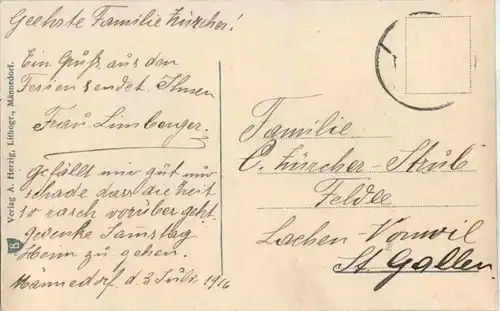 Geehrte Familie Zürcher!
Ein Gruß aus den
Ferien sendet Ihnen
Frau Limberger.
Gefällt mir gut nur
schade dass die Zeit
so rasch vorüber geht.
gedenke Samstag
Heim zu gehen.
Männedorf d. 3 Juli 1916
Verlag A. Herzig, Lithogr., Männedorf.
Familie
C. Zürcher-Strub
Feldle
Lachen-Vonwil
St. Gallen